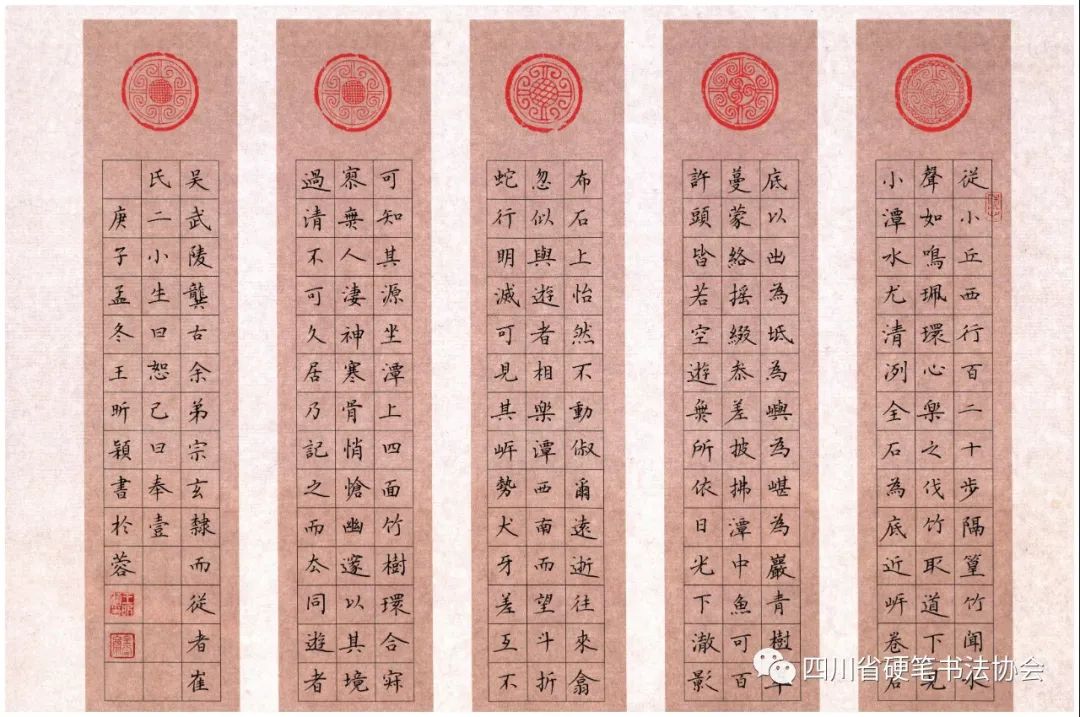 從小丘西行百二十步隔篁竹聞水
聲如鳴珮環心樂之伐竹取道下見
小潭水尤清洌全石為底近岸卷石
底以出為坻為嶼為嵁為巖青樹翠
蔓蒙絡摇綴参差披拂潭中魚可百
許頭皆若空遊無所依日光下澈影
布石上怡然不動俶爾遠逝往來翕
忽似與遊者相樂潭西南而望斗折
蛇行明滅可見其岸勢犬牙差互不
可知其源坐潭上四面竹樹環合寂
寥無人淒神寒骨悄愴幽邃以其境
過清不可久居乃記之而去同遊者
吴武陵龔古余弟宗玄隸而從者崔
氏二小生曰恕己曰奉壹
庚子孟冬王昕穎書於蓉
四川省硬笔书法协会